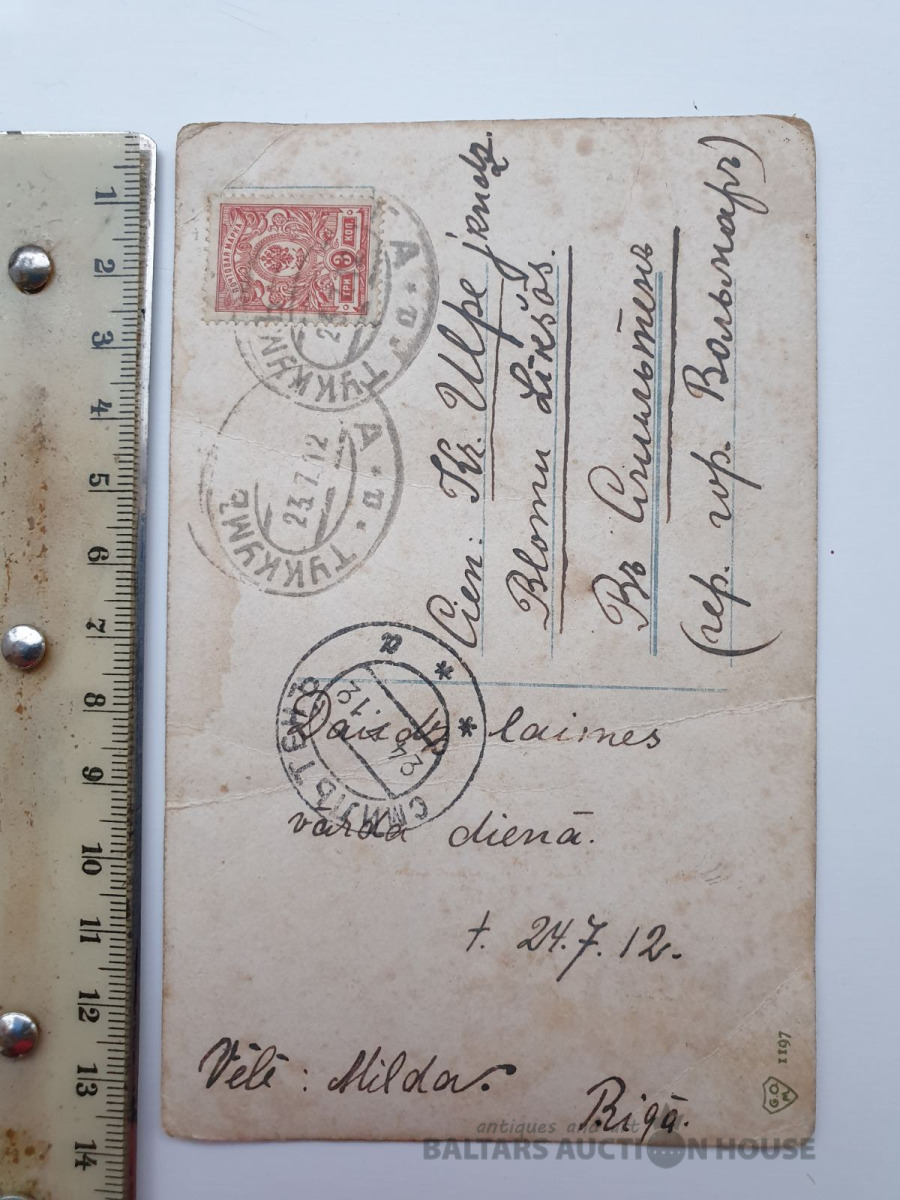 ПОЧТОВАЯ МАРКА
ТРИ 3 КОП.
ТУККУМЪ
ТУККУМЪ * а * А
23.7.12
СМИЛЬТЕНЪ * * а
Cien: Kr. Ulpe jkndz.
Blomu Liksõs.
Въ Смильтенъ
(чер. гор. Вольмаръ)
Daudz laimes
varda dienā.
t. 24.7.12.
Vēlē: Milda.
Rigā.
1197
1
2
3
4
5
6
7
8
9
10
11
12
13
14
antiques and art
BALTARS AUCTION HOUSE